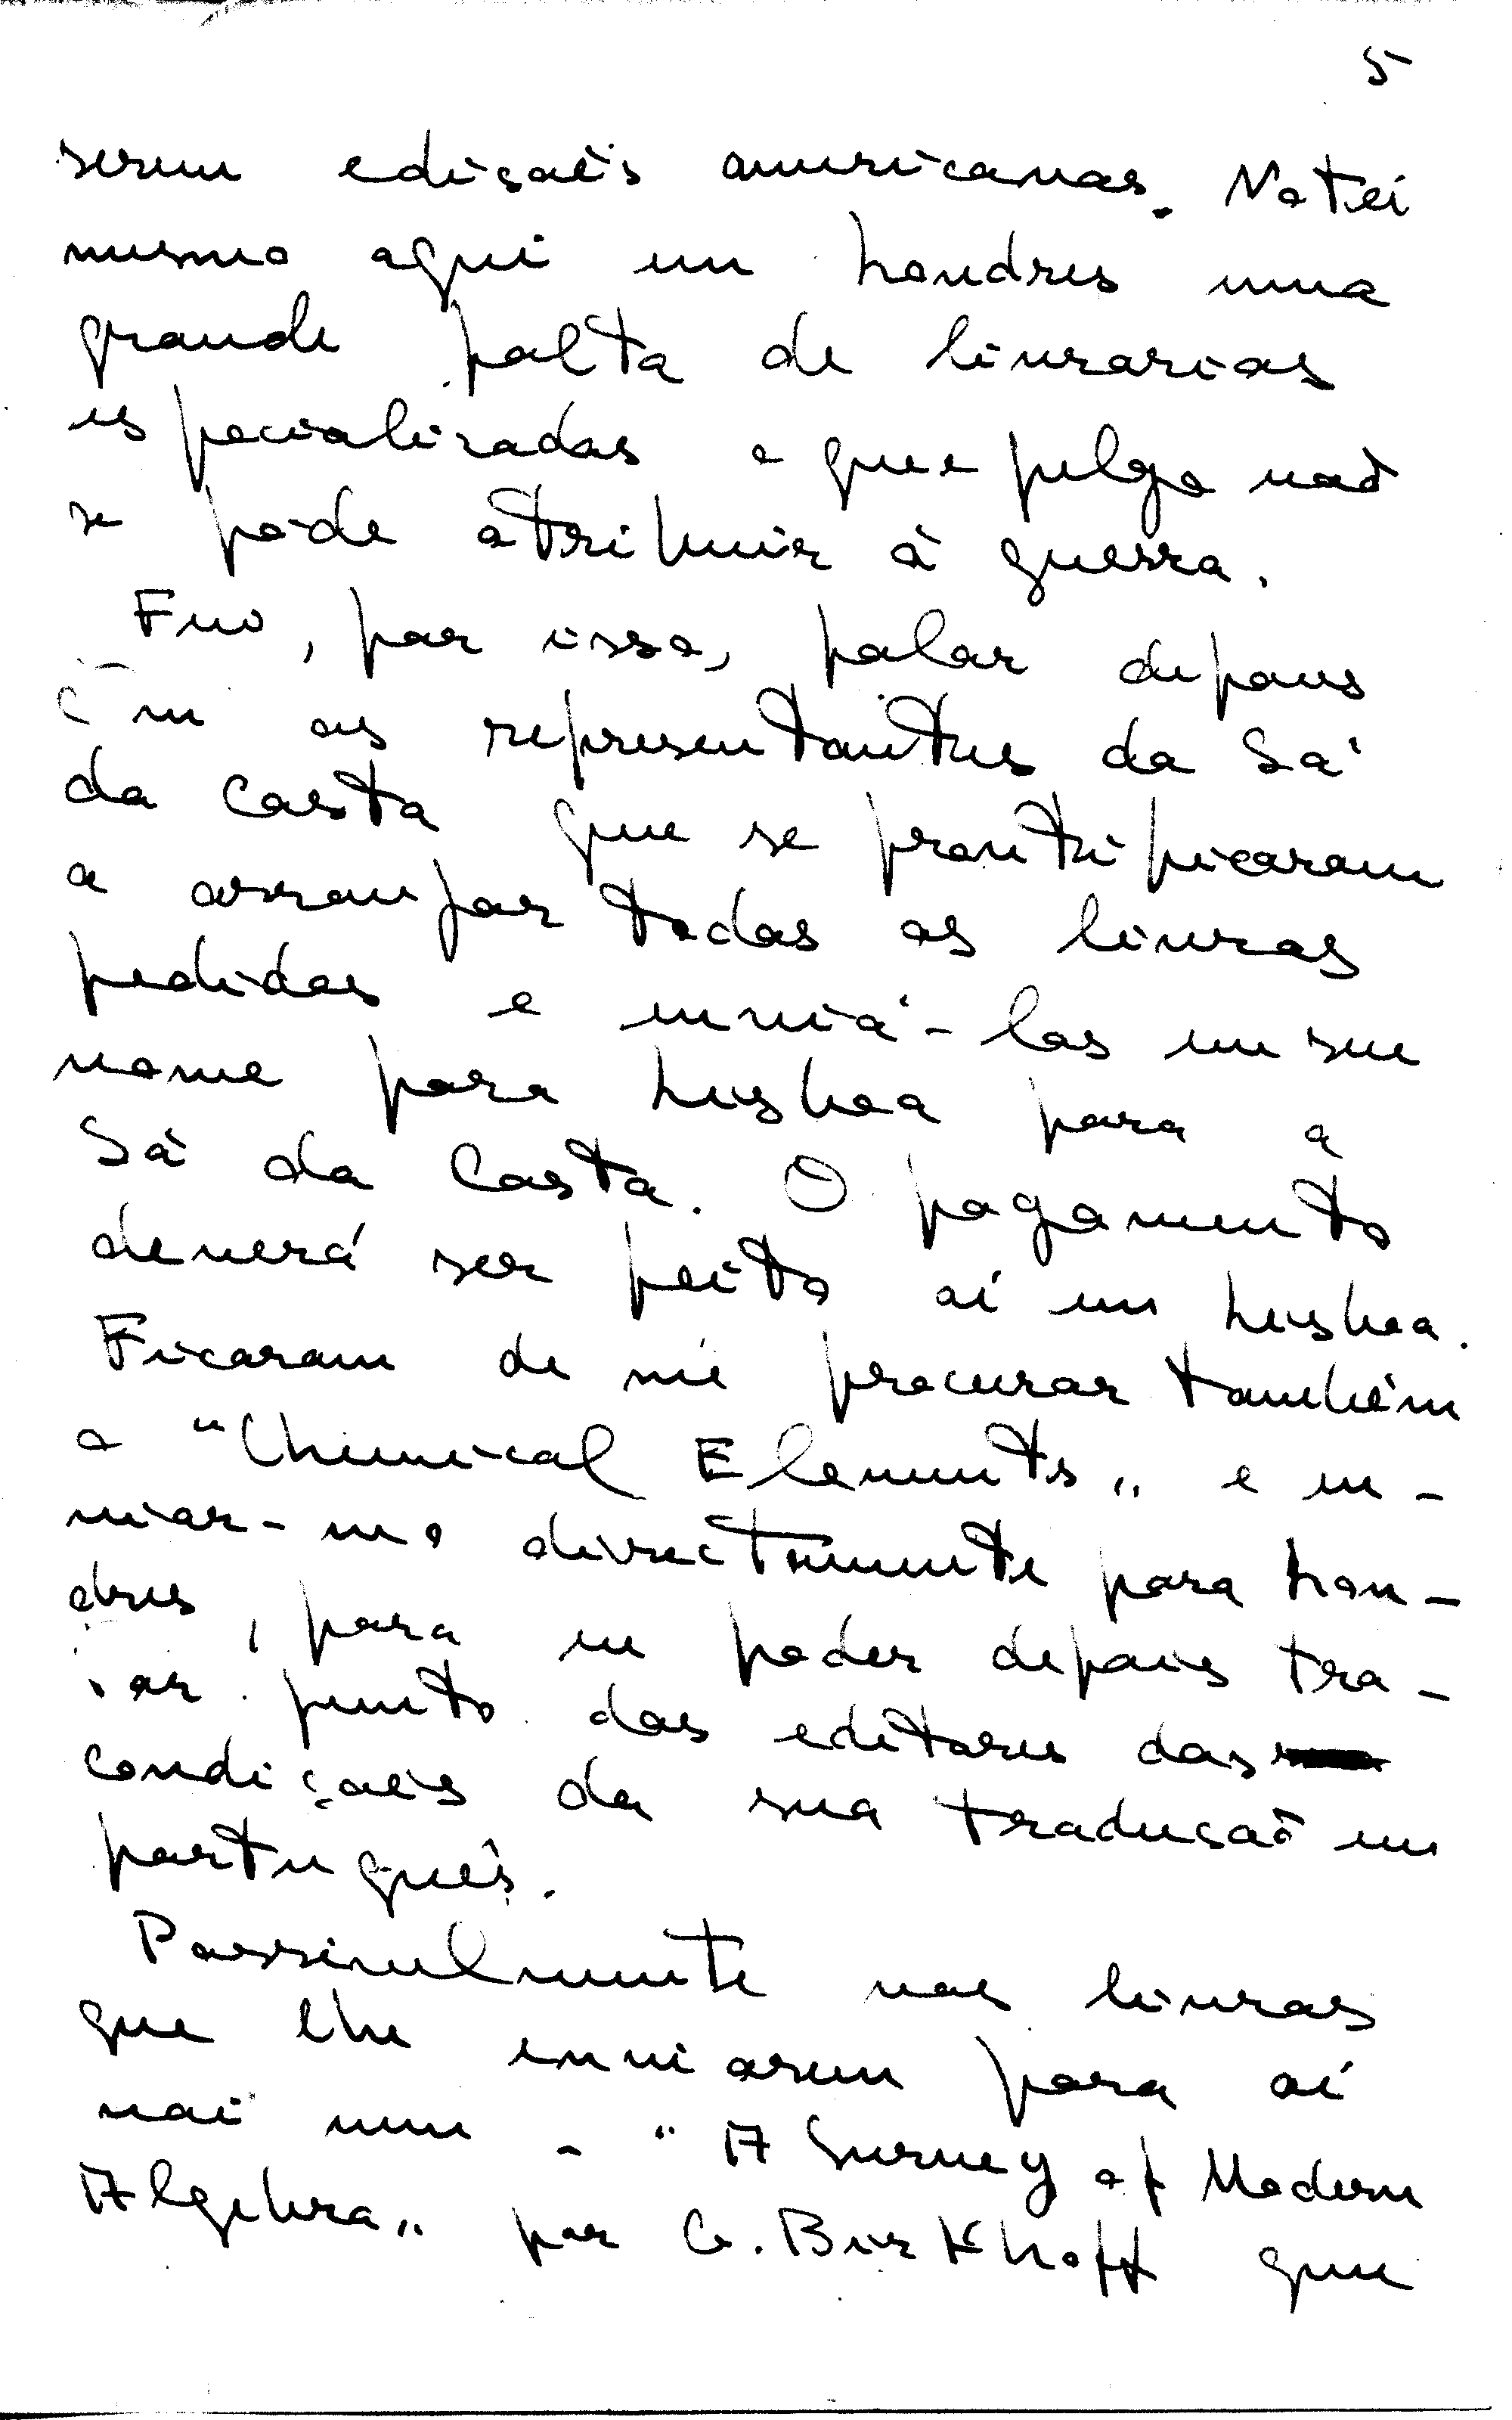 5
serem edições americanas. Notei
mesmo aqui em Londres uma
grande falta de livrarias
especializadas o que julgo não
se pode atribuir à guerra.
Fui, por isso, falar depois
com os representantes da Sá
da Costa que se prontificaram
a arranjar todos os livros
pedidos e enviá-los em seu
nome para Lisboa para a
Sá da Costa. O pagamento
deverá ser feito aí em Lisboa.
Ficaram de me procurar também
o "Chemical Elements" e en-
viar-mo directamente para Lon-
dres, para eu poder depois tra-
tar junto dos editores das
condições da sua tradução em
português.
Possivelmente nos livros
que lhe enviarem para aí
não vem - "A Survey of Modern
Algebra" por G. Birkhoff que